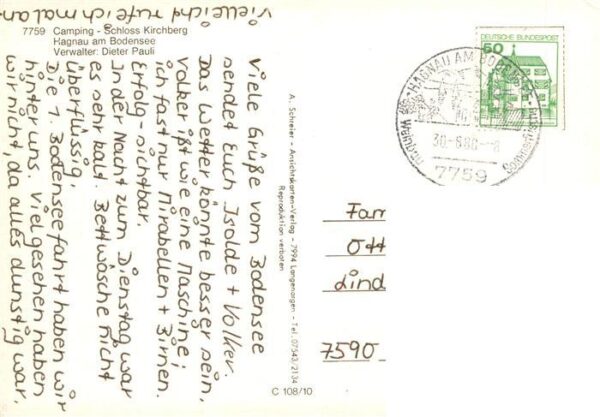 7759 Camping - Schloss Kirchberg
Hagnau am Bodensee
Verwalter: Dieter Pauli
Viele Grüße vom Bodensee
sendet Euch Isolde + Volker.
Das Wetter könnte besser sein,
Volker ißt wie eine Maschine;
ich fast nur Mirabellen + Birnen.
Erfolg - sichtbar.
In der Nacht zum Dienstag war
es sehr kalt. Bettwäsche nicht
überflüssig.
Die 1. Bodenseefahrt haben wir
hinter uns. Viel gesehen haben
wir nicht, da alles dunstig war.
Vielleicht rufe ich mal an.
A. Schreier - Ansichtskarten-Verlag - 7994 Langenargen - Tel. 07543/2134
Reproduktion verboten
C 108/10
DEUTSCHE BUNDESPOST
60
HAGNAU AM BODENSEE
30.-6.80.-8
7759
Fam
Ott
Lind
7590